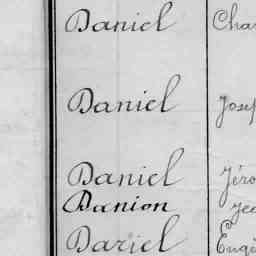 Daniel Cha
Daniel Josep
Daniel Jéro
Danion Jea
Dariel Eugè